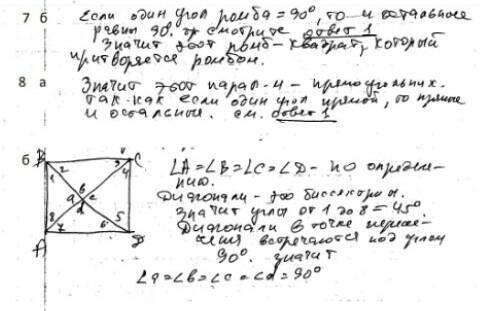 7 б Если один угол ромба = 90°, то и остальные
равны 90°. смотрите ответ 1
Значит этот ромб - квадрат, который
притворяется ромбом.
8 а Значит этот парал-м - прямоугольник.
Так как если один угол прямой, то прямые
и остальные. см. ответ 1
б B C
1 2 3 4
a b c d
8 7 6 5
A D
∠A = ∠B = ∠C = ∠D - по определе-
нию.
Диагонали - это биссектрисы.
Значит углы от 1 до 8 = 45°
Диагонали в точке пересе-
чения встречаются под углом
90°. значит
∠a = ∠b = ∠c = ∠d = 90°